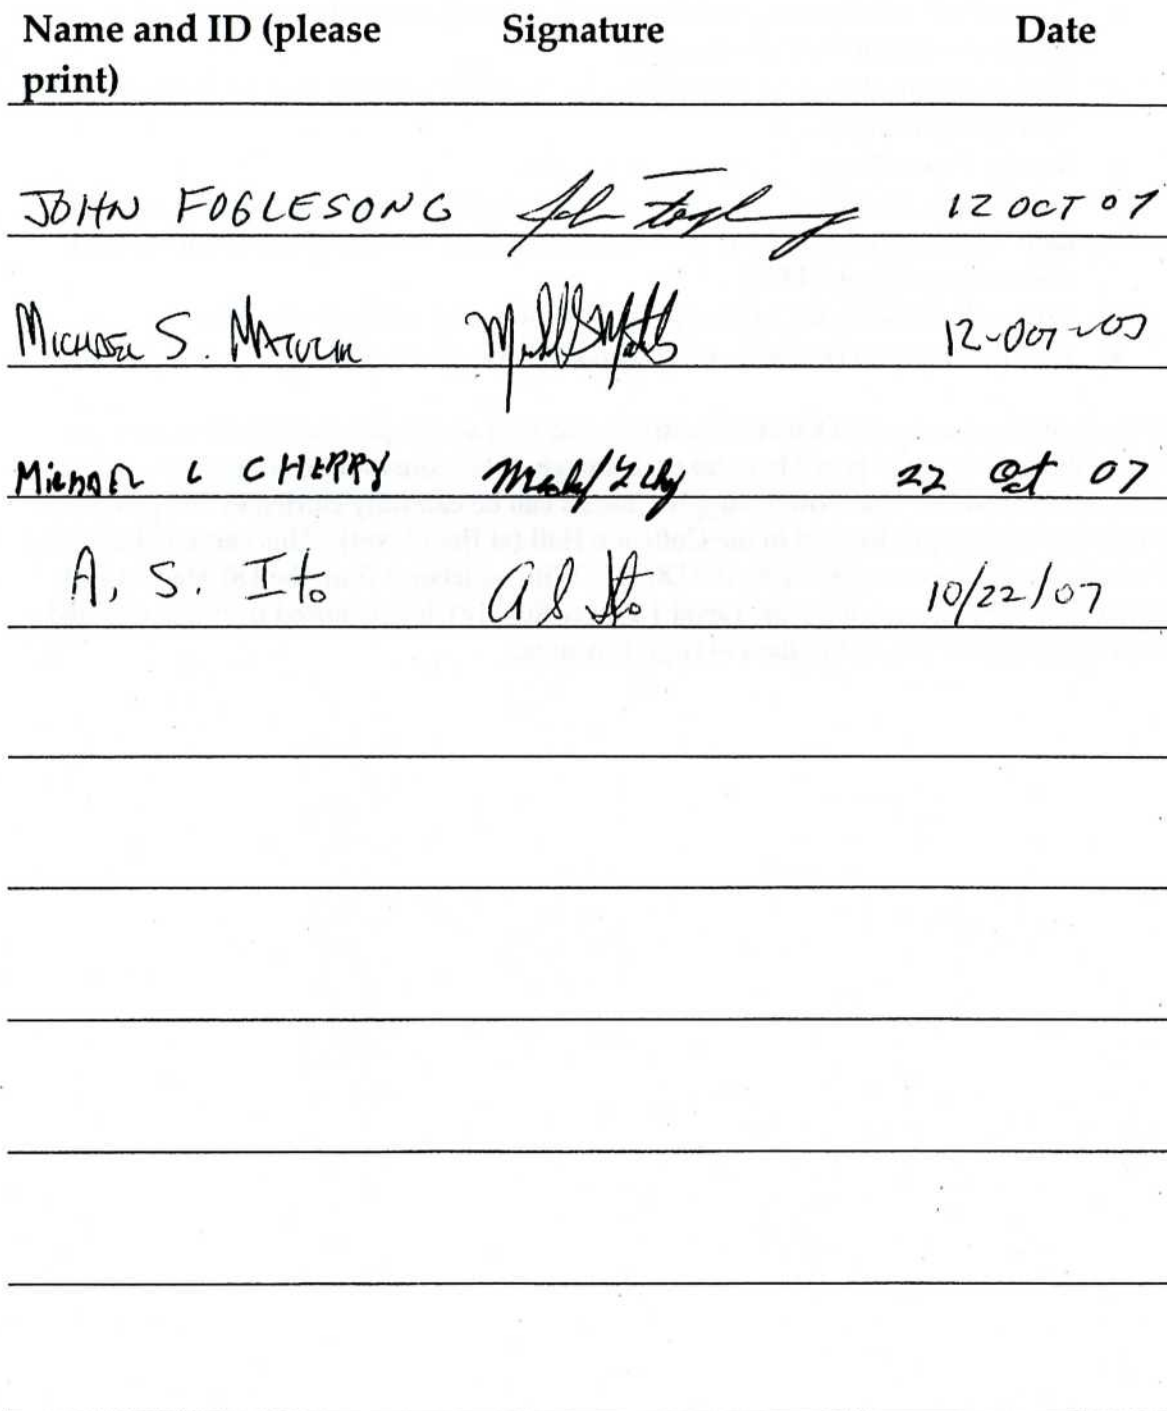 Name and ID (please print) Signature Date
JOHN FOGLESONG 12 OCT 07
MICHAEL S. 12-OCT-07
L CHERRY 22 Oct 07
A. S. Ito A S Ito 10/22/07